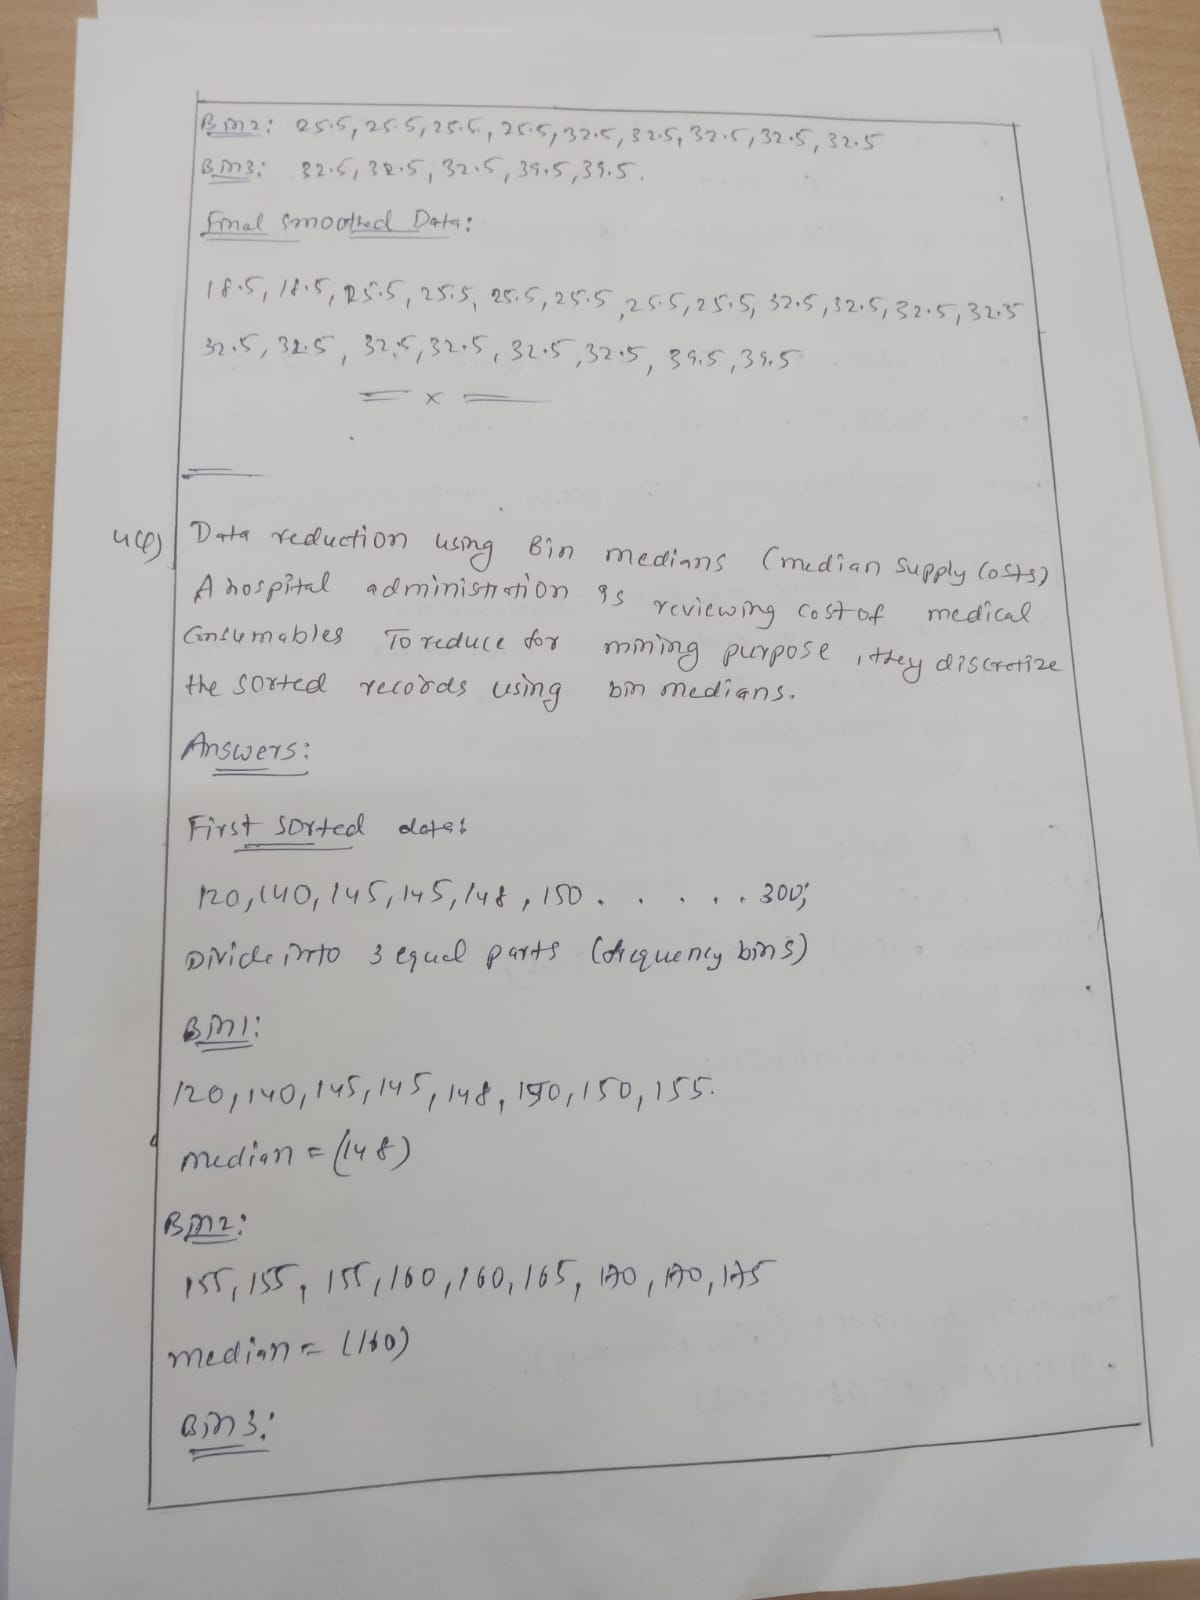 Bin2: 25.5, 25.5, 25.5, 25.5, 32.5, 32.5, 32.5, 32.5, 32.5
Bin3: 32.5, 32.5, 32.5, 39.5, 39.5.
Final smoothed Data:
18.5, 18.5, 25.5, 25.5, 25.5, 25.5, 25.5, 25.5, 32.5, 32.5, 32.5, 32.5
32.5, 32.5, 32.5, 32.5, 32.5, 32.5, 39.5, 39.5
x
Data reduction using Bin medians (median supply costs)
A hospital administration is reviewing cost of medical
Consumables To reduce for mining purpose, they discretize
the sorted records using bin medians.
Answers:
First sorted data:
120, 140, 145, 145, 148, 150 . . . . . . 300;
Divide into 3 equal parts (frequency bins)
Bin1:
120, 140, 145, 145, 148, 150, 150, 155.
median = (148)
Bin2:
155, 155, 155, 160, 160, 165, 170, 170, 175
median = (160)
Bin3: